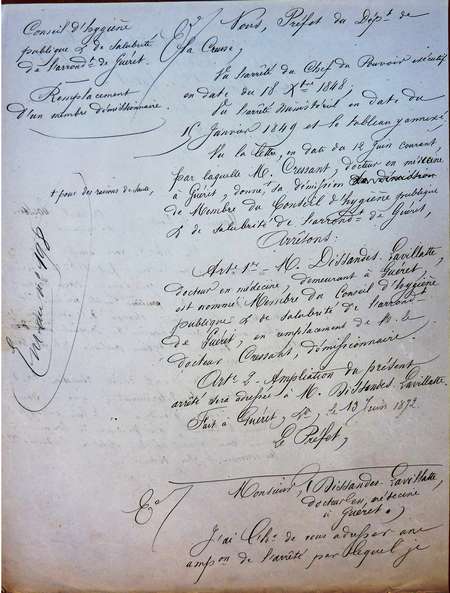 Conseil d'hygiène
publique & de salubrité
de l'arrond.t de Guéret.
Remplacement
d'un membre démissionnaire.
Nous, Préfet du Dép.t de
la Creuse,
Vu l'arrêté du Chef du Pouvoir exécutif
en date du 18 Xbre 1848;
Vu l'arrêté ministériel en date du
15 Janvier 1849 et le tableau y annexé;
Vu la lettre, en date du 12 Juin courant,
par laquelle M. Cressant, docteur en médecine
à Guéret, donne, sa démission
+ pour des raisons de santé,
de Membre du Conseil d'hygiène publique
& de salubrité de l'arrond.t de Guéret,
Arrêtons:
Art. 1er = M. Dissandes-Lavillatte,
docteur en médecine, demeurant à Guéret,
est nommé Membre du Conseil d'hygiène
publique & de salubrité de l'arrond.t
de Guéret, en remplacement de M. le
docteur Cressant, démissionnaire.
Art. 2 - Ampliation du présent
arrêté sera adressée à M. Dissandes-Lavillatte.
Fait à Guéret, le 13 Juin 1872.
Le Préfet,
Monsieur Dissandes-Lavillatte,
docteur en médecine
à Guéret,
J'ai l'h. de vous adresser une
ampon de l'arrêté par lequel je